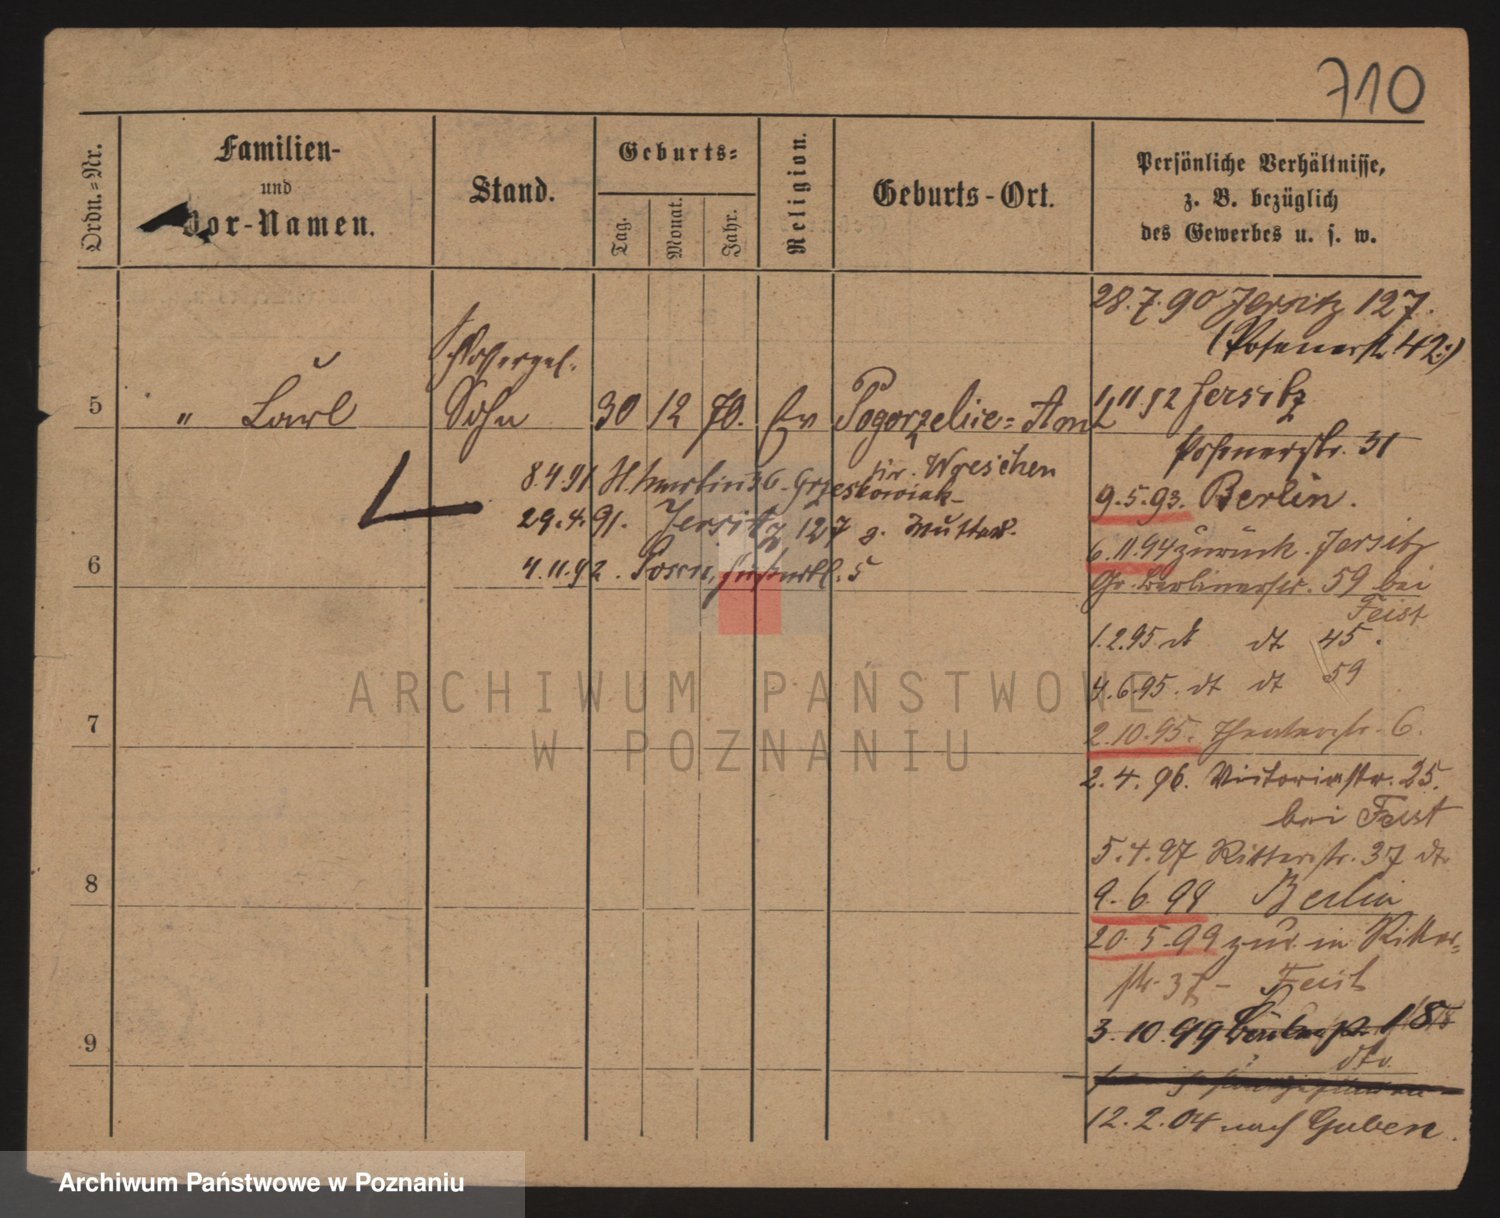 710
Ordn.=Nr.
Familien-
und
Vor-Namen.
Stand.
Geburts=
Tag.
Monat.
Jahr.
Religion.
Geburts-Ort.
Persönliche Verhältnisse,
z. B. bezüglich
des Gewerbes u. s. w.
28.7.90 Jersitz 127.
(Posenerstr. 42.)
5 " Carl Sohn 30 12 70. Ev Pogorzelice=Amt
1.11.92 Jersitz
Posenerstr. 31
8.4.91 36. Grzeskowiak
Kr. Wreschen
9.5.93. Berlin.
29.4.91. Jersitz 127 z. Mutter.
6.11.94 zurück. Jersitz
6
4.11.92. Posen, 5
Gr. Berlinerstr. 59 bei
Feist
1.2.95 dt dt 45.
4.6.95. dt dt 59
7
2.10.95. Theaterstr. 6.
2.4.96. Victoriastr. 25.
bei Feist
5.4.97 Ritterstr. 37 dto
8
9.6.98 Berlin
20.5.99 zur. in Ritter=
str. 37 - Feist
3.10.99 18
9
dto
12.2.04 nach Guben.
ARCHIWUM PAŃSTWOWE
W POZNANIU
Archiwum Państwowe w Poznaniu